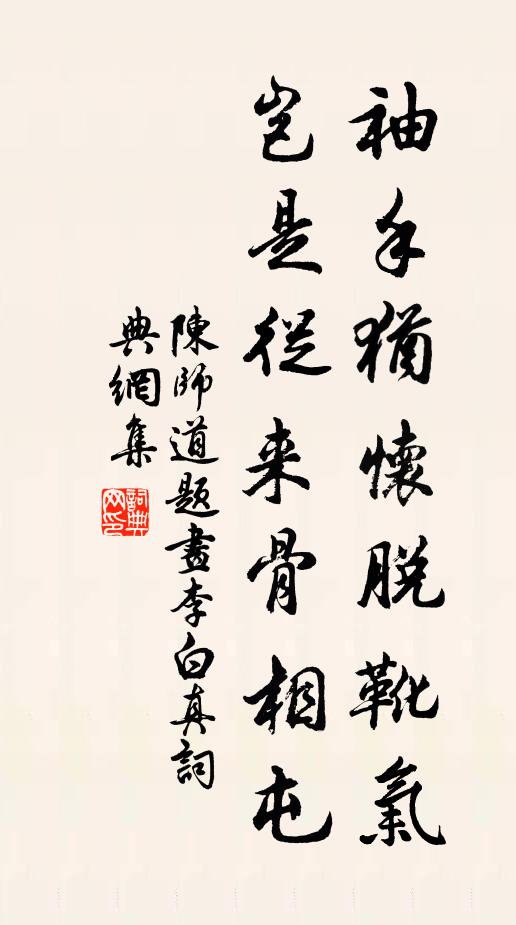 袖手猶懷脫靴氣
豈是從来骨相屯
陳師道題畫李白真詞
典網集
詞典網印